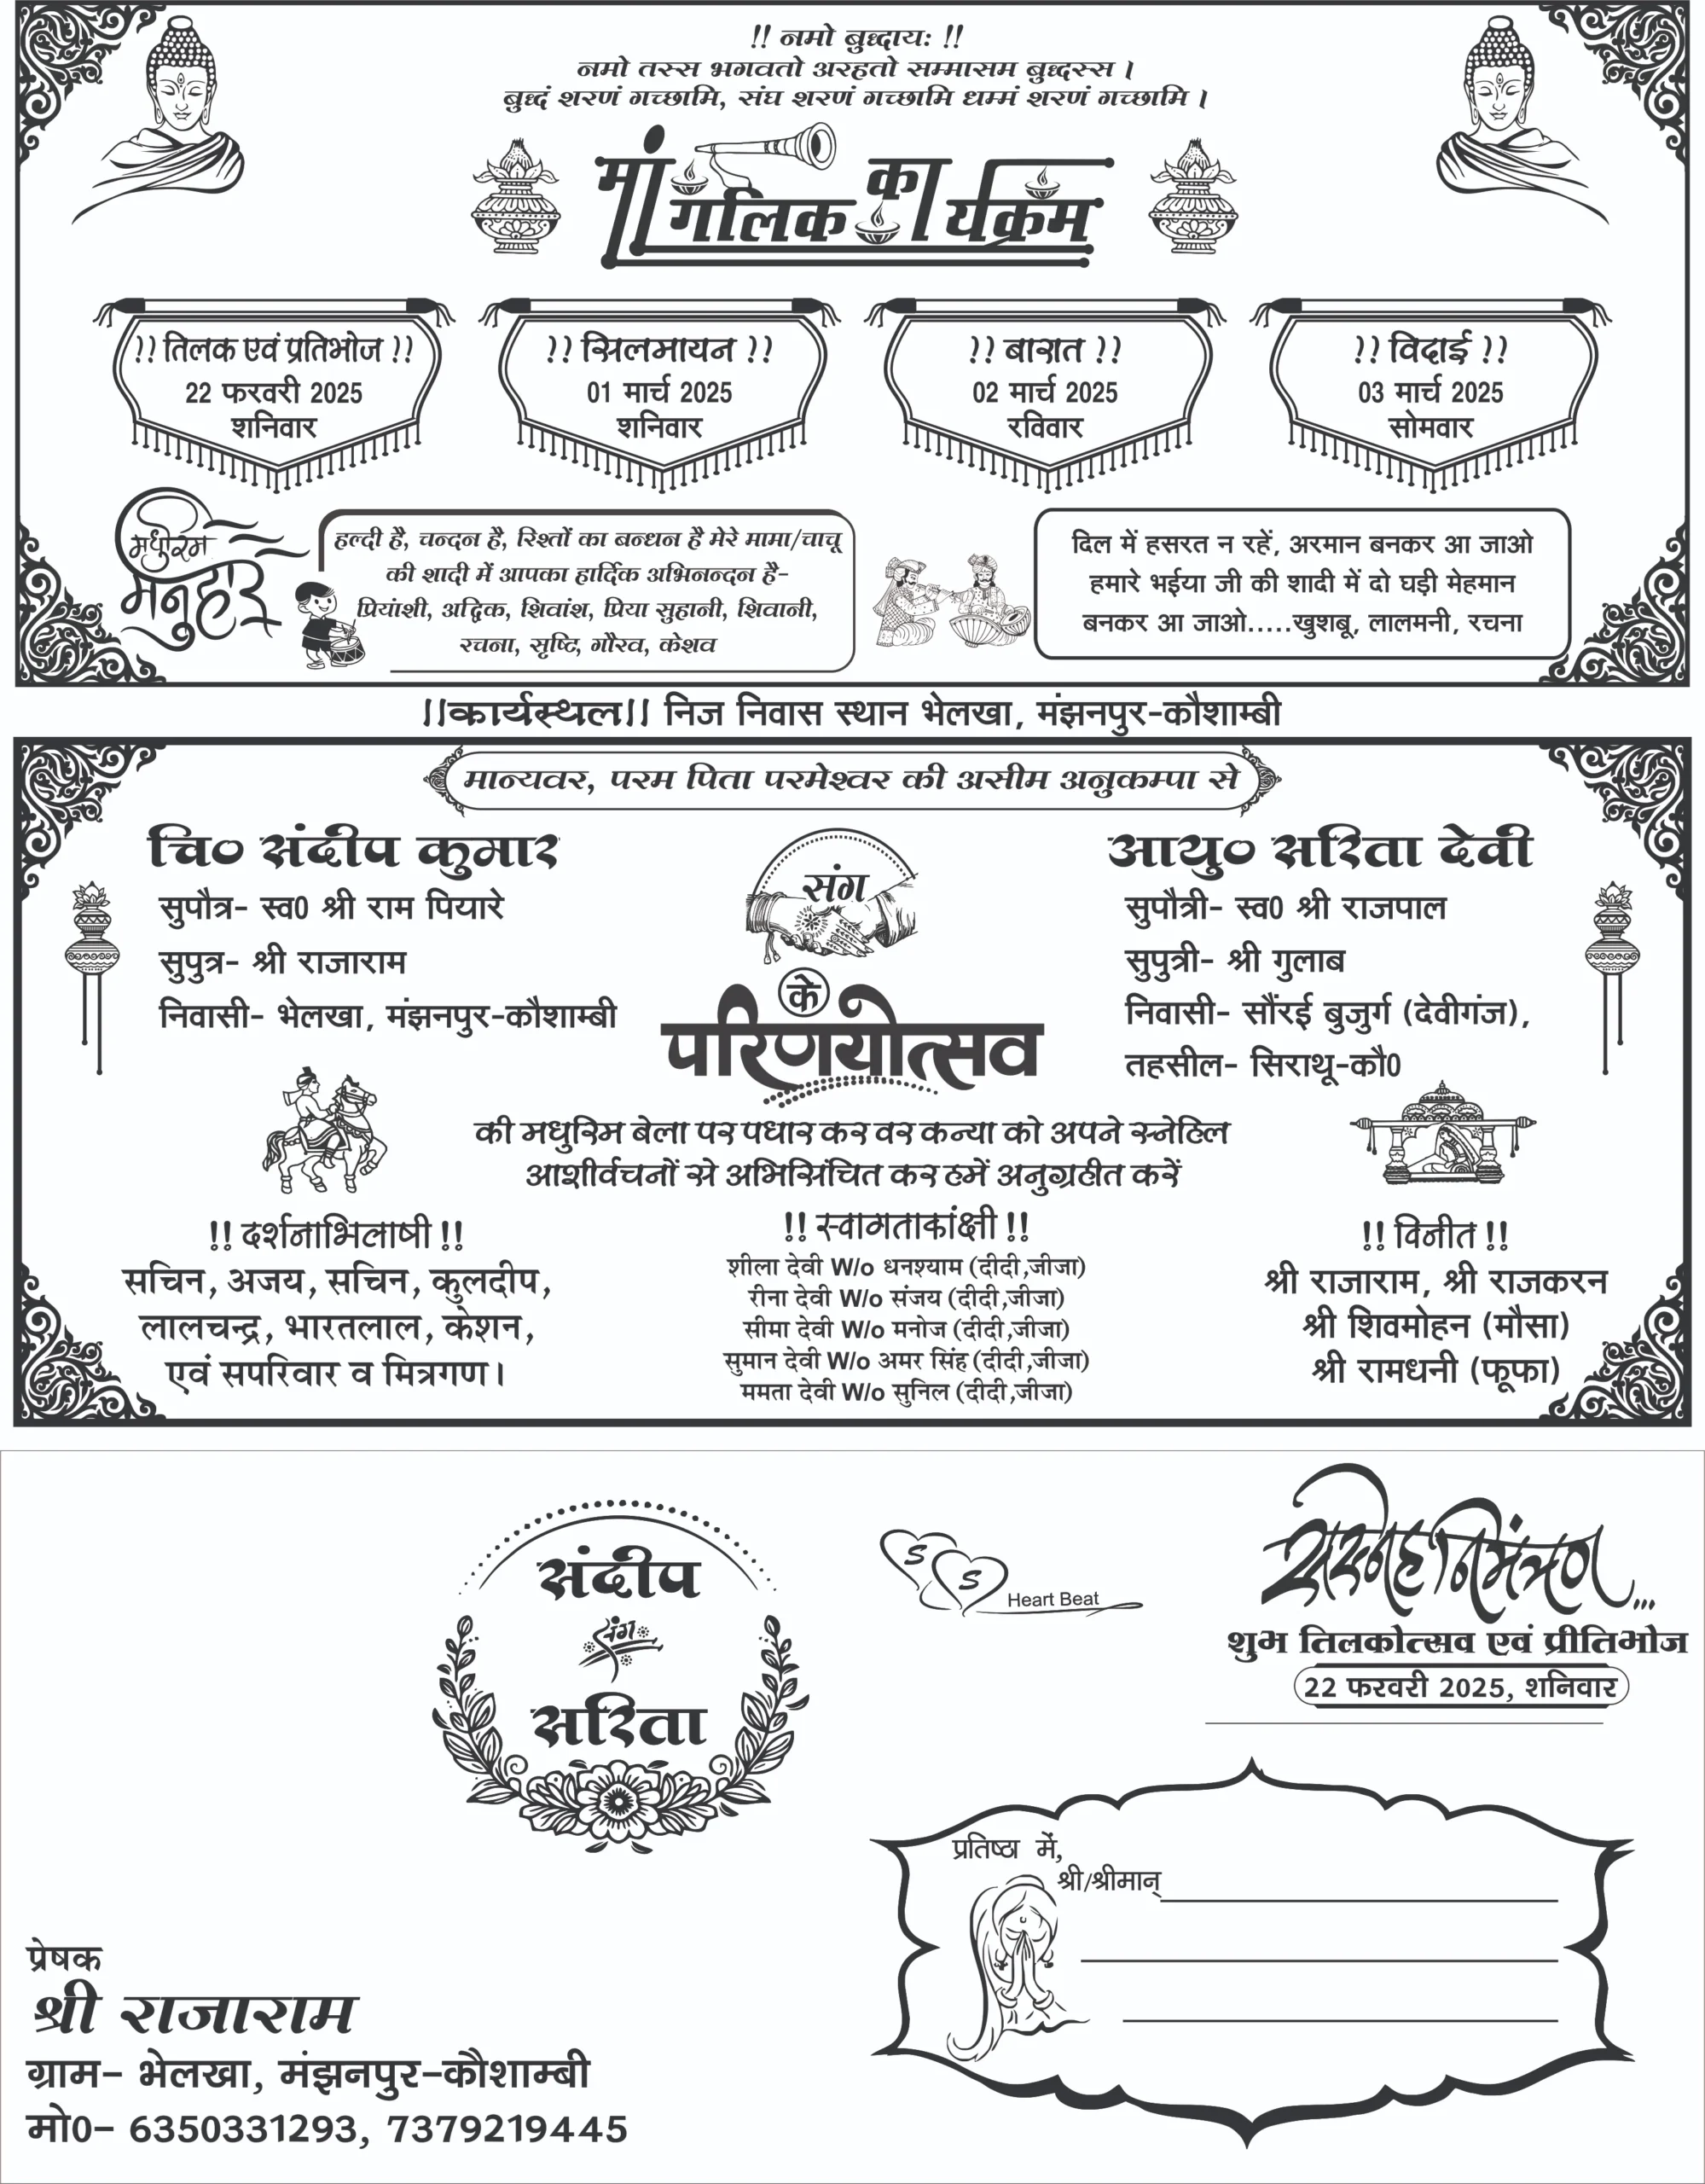 !! नमो बुद्धाय: !!
नमो तस्स भगवतो अरहतो सम्मासम बुद्धस्स ।
बुद्धं शरणं गच्छामि, संघ शरणं गच्छामि धम्मं शरणं गच्छामि ।
मांगलिक कार्यक्रम
!! तिलक एवं प्रतिभोज !!
22 फरवरी 2025
शनिवार
!! सिलमायन !!
01 मार्च 2025
शनिवार
!! बारात !!
02 मार्च 2025
रविवार
!! विदाई !!
03 मार्च 2025
सोमवार
मधुरिम
मनुहार
हल्दी है, चन्दन है, रिश्तों का बन्धन है मेरे मामा/चाचू
की शादी में आपका हार्दिक अभिनन्दन है-
प्रियांशी, अद्विक, शिवांश, प्रिया सुहानी, शिवानी,
रचना, सृष्टि, गौरव, केशव
दिल में हसरत न रहें, अरमान बनकर आ जाओ
हमारे भईया जी की शादी में दो घड़ी मेहमान
बनकर आ जाओ.....खुशबू, लालमनी, रचना
!!कार्यस्थल!! निज निवास स्थान भेलखा, मंझनपुर-कौशाम्बी
मान्यवर, परम पिता परमेश्वर की असीम अनुकम्पा से
चि० संदीप कुमार
सुपौत्र- स्व0 श्री राम पियारे
सुपुत्र- श्री राजाराम
निवासी- भेलखा, मंझनपुर-कौशाम्बी
संग
आयु० सरिता देवी
सुपौत्री- स्व0 श्री राजपाल
सुपुत्री- श्री गुलाब
निवासी- सौंरई बुजुर्ग (देवीगंज),
तहसील- सिराथू-कौ0
के
परिणयोत्सव
की मधुरिम बेला पर पधार कर वर कन्या को अपने स्नेहिल
आशीर्वचनों से अभिसिंचित कर हमें अनुग्रहीत करें
!! दर्शनाभिलाषी !!
सचिन, अजय, सचिन, कुलदीप,
लालचन्द्र, भारतलाल, केशन,
एवं सपरिवार व मित्रगण।
!! स्वागताकांक्षी !!
शीला देवी W/o धनश्याम (दीदी,जीजा)
रीना देवी W/o संजय (दीदी,जीजा)
सीमा देवी W/o मनोज (दीदी,जीजा)
सुमान देवी W/o अमर सिंह (दीदी,जीजा)
ममता देवी W/o सुनिल (दीदी,जीजा)
!! विनीत !!
श्री राजाराम, श्री राजकरन
श्री शिवमोहन (मौसा)
श्री रामधनी (फूफा)
संदीप
संग
सरिता
S
S
Heart Beat
सस्नेह निमंत्रण...
शुभ तिलकोत्सव एवं प्रीतिभोज
22 फरवरी 2025, शनिवार
प्रतिष्ठा में,
श्री/श्रीमान्
प्रेषक
श्री राजाराम
ग्राम- भेलखा, मंझनपुर-कौशाम्बी
मो0- 6350331293, 7379219445